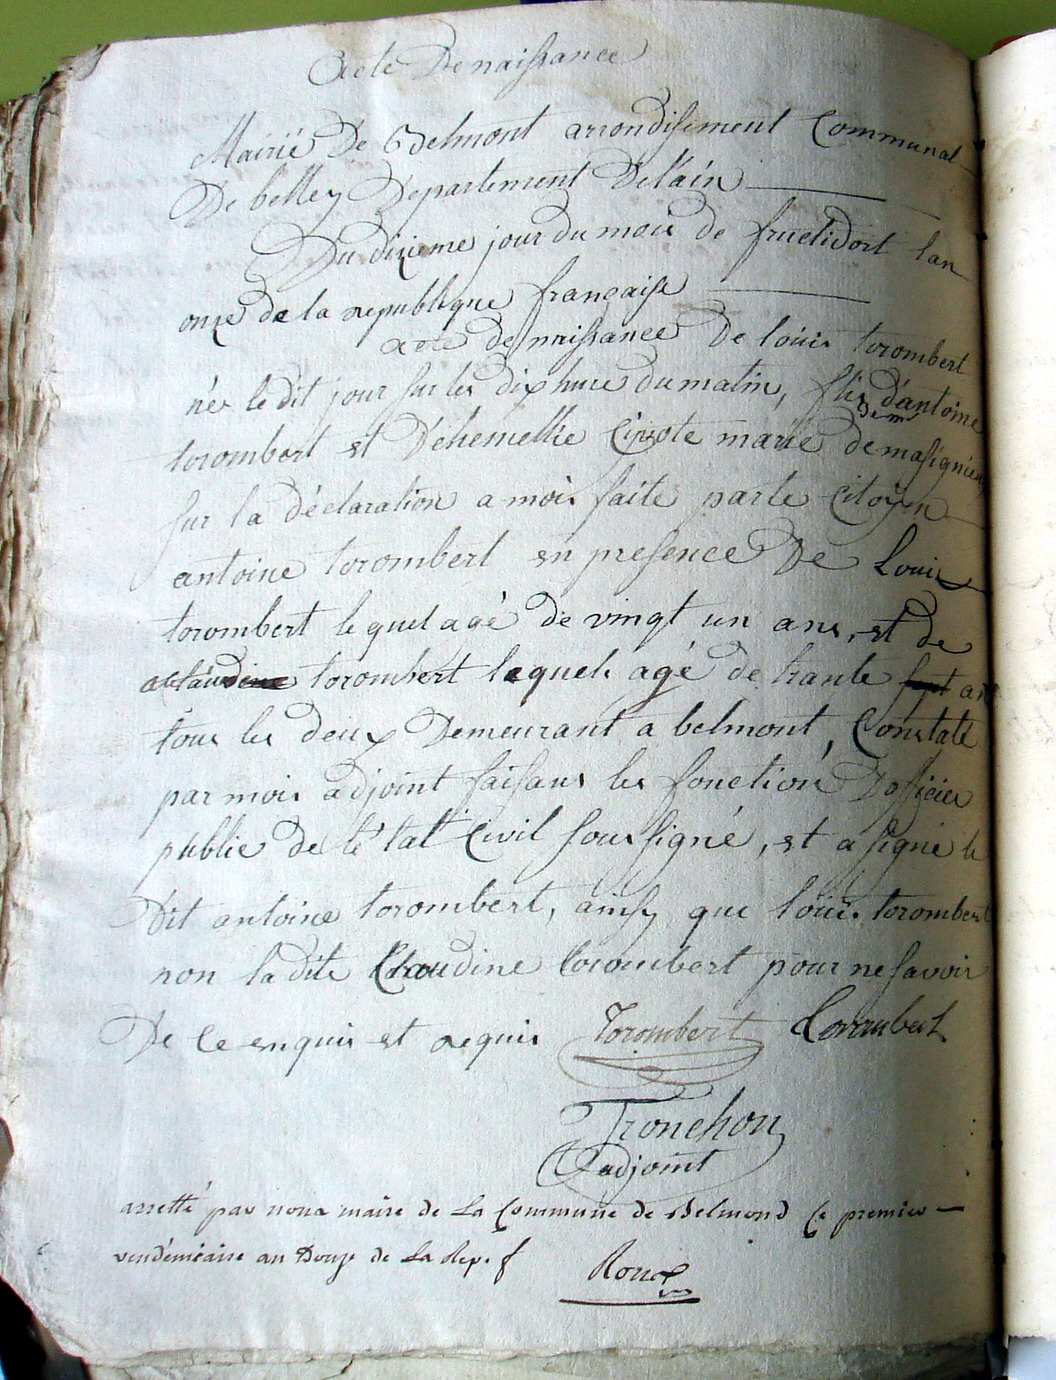 Acte De naissance
Mairie De Belmont arrondisement Communal
De belley Departement Del'ain
Du dixieme jour du mois de fructidort lan
onze de la republique française
acte de naissance De loüis torombert
nés ledit jour sur les dix hure du matin, fils d'antoine
torombert et D'ehemellie marie De masignieu
sur la déclaration a mois faite parle Citoyen
antoine torombert en presence De Louis
torombert lequel agé de vingt un ans, et de
torombert lequels agé de trante an
tous les deux Demeurant a belmont, Constaté
par mois adjoint faisans les fonction D'officier
public de l'état Civil soussigné, et a signé le
Dit antoine torombert, ainsy que loüis torombert
non ladite Claudine torombert pour ne savoir
De Ce enquis et requis Torombert torombert
Tronchon
adjoint
arretté par nous maire de La Commune de Belmond Ce premier
vendémiaire an Douze de La Rep. f